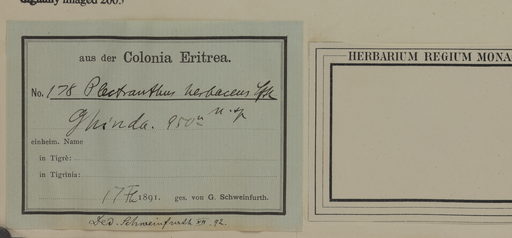 digitally imaged 2005
aus der Colonia Eritrea.
No. 178 Plectranthus herbaceus Sfth
n. sp
Ghinda. 950 m
einheim. Name
in Tigrè:
in Tigrinia:
17 1891. ges. von G. Schweinfurth.
Ded. Schweinfurth XII. 92.
HERBARIUM REGIUM MONA